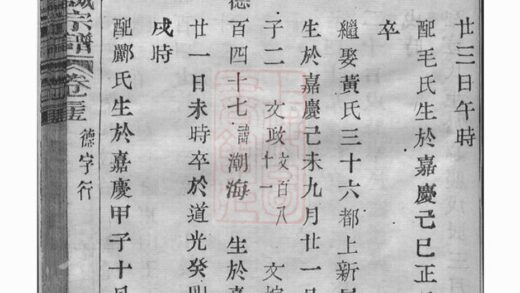 廿三日午時
配毛氏生於嘉慶己巳正
卒
繼娶黃氏三十六都上新
生於嘉慶己未九月廿一日
子二 文政 文百八十一 文
德百四十七 諱潮海 生於嘉
廿一日未時卒於道光癸卯
戌時
配酈氏生於嘉慶甲子十月
德字行
宗譜 卷